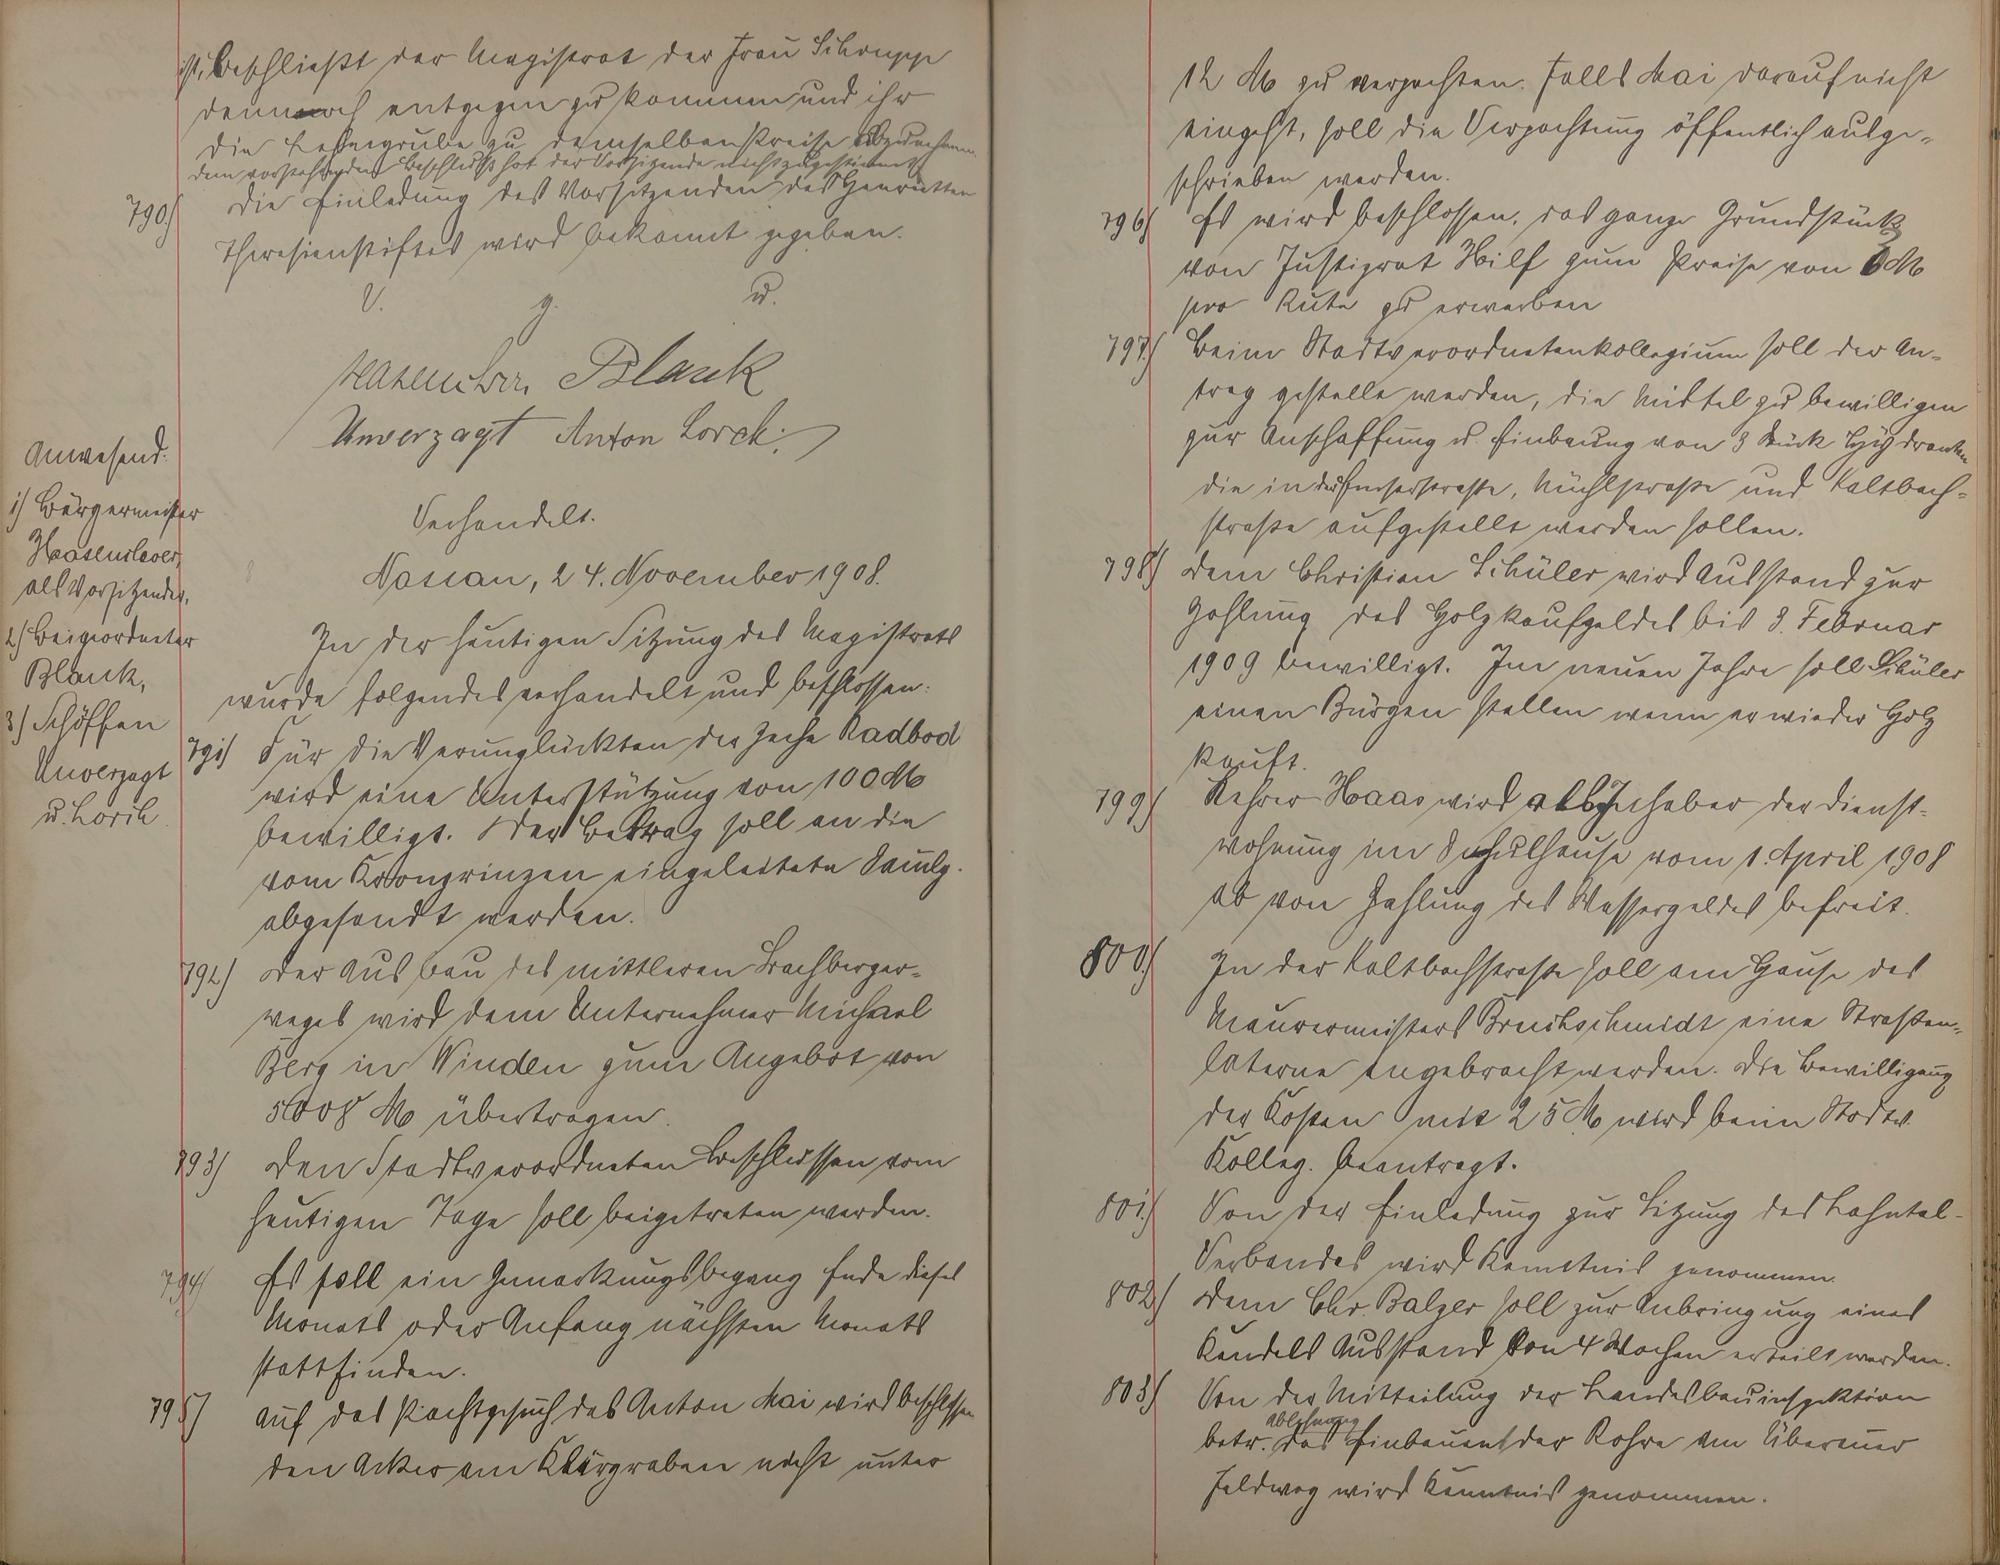 ist, beschließt der Magistrat der Frau Schrupp
dennoch entgegen zu kommen und ihr
die Lehmgrube zu demselben Preise abzunehmen.
Dem vorstehenden Beschluß hat der Vorsitzende nicht zugestimmt
790) Die Einladung des Vorsitzenden des Henrietten
Theresienstiftes wird bekannt gegeben.
V. g. u.
Hasenclever. Blank
Unverzagt Anton Lorch.
Anwesend:
1) Bürgermeister
Hasenclever,
als Vorsitzender,
2) Beigeordneter
Blank,
3) Schöffen
Unverzagt
u. Lorch
Verhandelt.
Nassau, 24. November 1908.
In der heutigen Sitzung des Magistrats
wurde folgendes verhandelt und beschlossen:
791) Für die Verunglückten der Zeche Radbod
wird eine Unterstützung von 100 M
bewilligt. Der Betrag soll an die
vom Kronprinzen eingeleitete Samlg.
abgesandt werden.
792) Der Ausbau des mittleren Brachberger-
weges wird dem Unternehmer Michael
Berg in Winden zum Angebot von
5008 M übertragen.
793) Den Stadtverordneten Beschlüssen vom
heutigen Tage soll beigetreten werden.
794) Es soll ein Gemarkungsbegang Ende dieses
Monats oder Anfang nächsten Monats
stattfinden.
795) Auf das Pachtgesuch des Anton Mai wird beschlossen
den Acker am Klärgraben nicht unter
12 M zu verpachten. Falls Mai darauf nicht
eingeht, soll die Verpachtung öffentlich ausge-
schrieben werden.
796) Es wird beschlossen, das ganze Grundstück
von Justizrat Hilf zum Preise von 6 M
pro Rute zu erwerben
797) Beim Stadtverordnetenkollegium soll der An-
trag gestellt werden, die Mittel zu bewilligen
zur Anschaffung u. Einbauung von 3 Stück Hydranten
die in der Emserstraße, Mühlstraße und Kaltbach-
straße aufgestellt werden sollen.
798) Dem Christian Schüler wird Ausstand zur
Zahlung des Holzkaufgeldes bis 3. Februar
1909 bewilligt. Im neuen Jahre soll Schüler
einen Bürgen stellen wenn er wieder Holz
kauft.
799) Lehrer Haas wird als Inhaber der Dienst-
wohnung im Schulhause vom 1. April 1908
ab von Zahlung des Wassergeldes befreit.
800) In der Kaltbachstraße soll am Hause des
Maurermeisters Bruchschmidt eine Straßen-
laterne angebracht werden. Die Bewilligung
der Kosten mit 25 M wird beim Stadtv.
Kolleg. beantragt.
801) Von der Einladung zur Sitzung des Lahntal-
Verbandes wird Kenntnis genommen.
802) Dem Chr. Balzer soll zur Anbringung eines
Kandels Ausstand von 4 Wochen erteilt werden.
803) Von der Mitteilung der Landesbauinspektion
Ablehnung
betr. des Einbauens der Rohre am
Feldweg wird Kenntnis genommen.